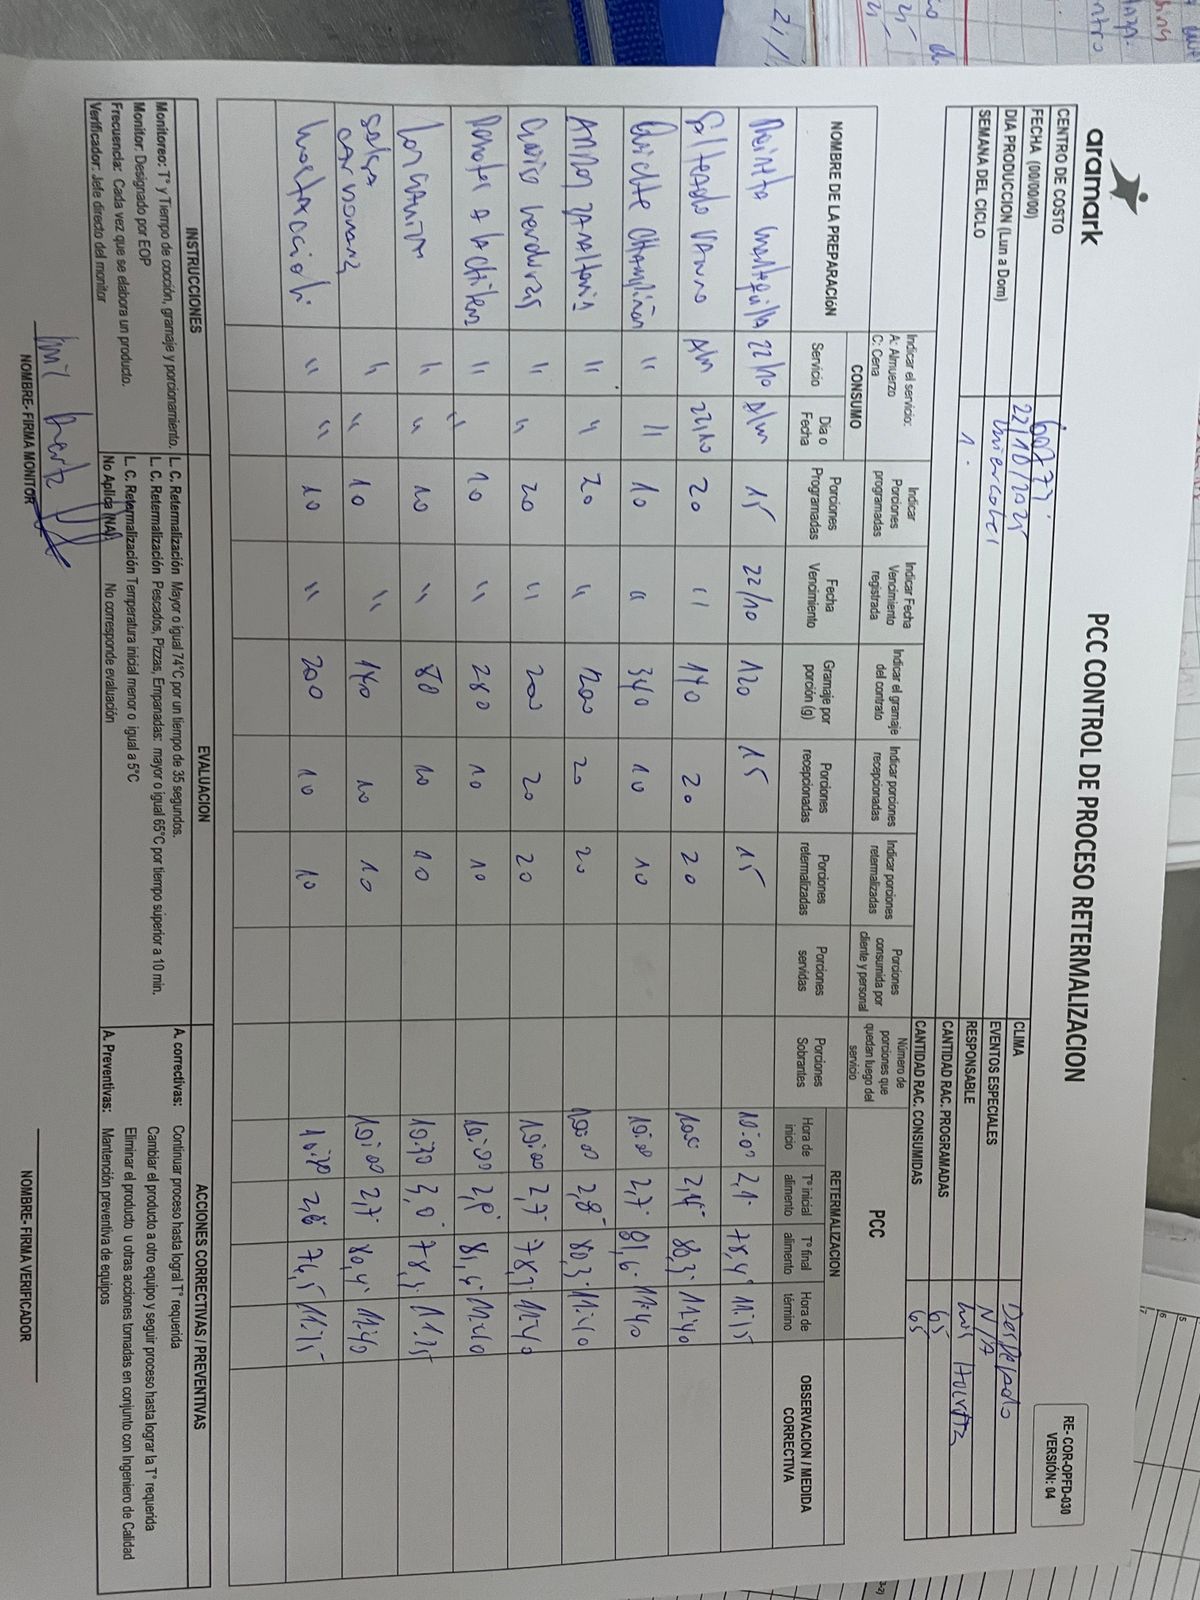 aramark
PCC CONTROL DE PROCESO RETERMALIZACION
RE- COR-OPFD-030
VERSIÓN: 04
CENTRO DE COSTO
FECHA (00/00/00) 22/10/2025
DIA PRODUCCION (Lun a Dom) Miercoles
SEMANA DEL CICLO 1.
CLIMA Despejado
EVENTOS ESPECIALES N/A
RESPONSABLE Luis
CANTIDAD RAC. PROGRAMADAS 65
CANTIDAD RAC. CONSUMIDAS 65
Indicar el servicio:
A: Almuerzo
C: Cena
Indicar Porciones programadas
Indicar Fecha Vencimiento registrada
Indicar el gramaje del contrato
Indicar porciones recepcionadas
Indicar porciones retermalizadas
Porciones consumida por cliente y personal
Número de porciones que quedan luego del servicio
PCC
NOMBRE DE LA PREPARACIÓN
CONSUMO
Servicio
Día o Fecha
Porciones Programadas
Fecha Vencimiento
Gramaje por porción (g)
Porciones recepcionadas
Porciones retermalizadas
Porciones servidas
Porciones Sobrantes
RETERMALIZACION
Hora de inicio
Tº inicial alimento
Tº final alimento
Hora de término
OBSERVACION / MEDIDA CORRECTIVA
22/10 A/m 15 22/10 120 15 15 10:00 2,1 78,4 11:15
Salteado A/m 22/10 20 " 140 20 20 80,3 11:40
Quiche CHAMPIÑON " " 10 " 340 10 10 10:00 2,7 81,6 11:40
Arroz " " 20 " 200 20 20 10:00 2,8 80,3 11:40
Guiso verduras " " 20 " 200 20 20 10:00 2,7 11:40
" " 10 " 280 10 10 10:00 81,4 11:40
" " 10 " 80 10 10 10:30 3,0 11:25
salsa carbonara " " 10 " 140 10 10 10:00 2,7 80,4 11:40
mostaccioli " " 10 " 200 10 10 10:30 11:15
INSTRUCCIONES
Monitoreo: Tº y Tiempo de cocción, gramaje y porcionamiento.
Monitor: Designado por EOP
Frecuencia: Cada vez que se elabora un producto.
Verificador: Jefe directo del monitor
EVALUACION
L. C. Retermalización Mayor o igual 74°C por un tiempo de 35 segundos.
L. C. Retermalización Pescados, Pizzas, Empanadas: mayor o igual 65°C por tiempo superior a 10 min.
L. C. Retermalización Temperatura inicial menor o igual a 5°C
No Aplica (NA) No corresponde evaluación
ACCIONES CORRECTIVAS / PREVENTIVAS
A. correctivas: Continuar proceso hasta logral T° requerida
Cambiar el producto a otro equipo y seguir proceso hasta lograr la T° requerida
Eliminar el producto u otras acciones tomadas en conjunto con Ingeniero de Calidad
A. Preventivas: Mantención preventiva de equipos
NOMBRE- FIRMA MONITOR
NOMBRE- FIRMA VERIFICADOR